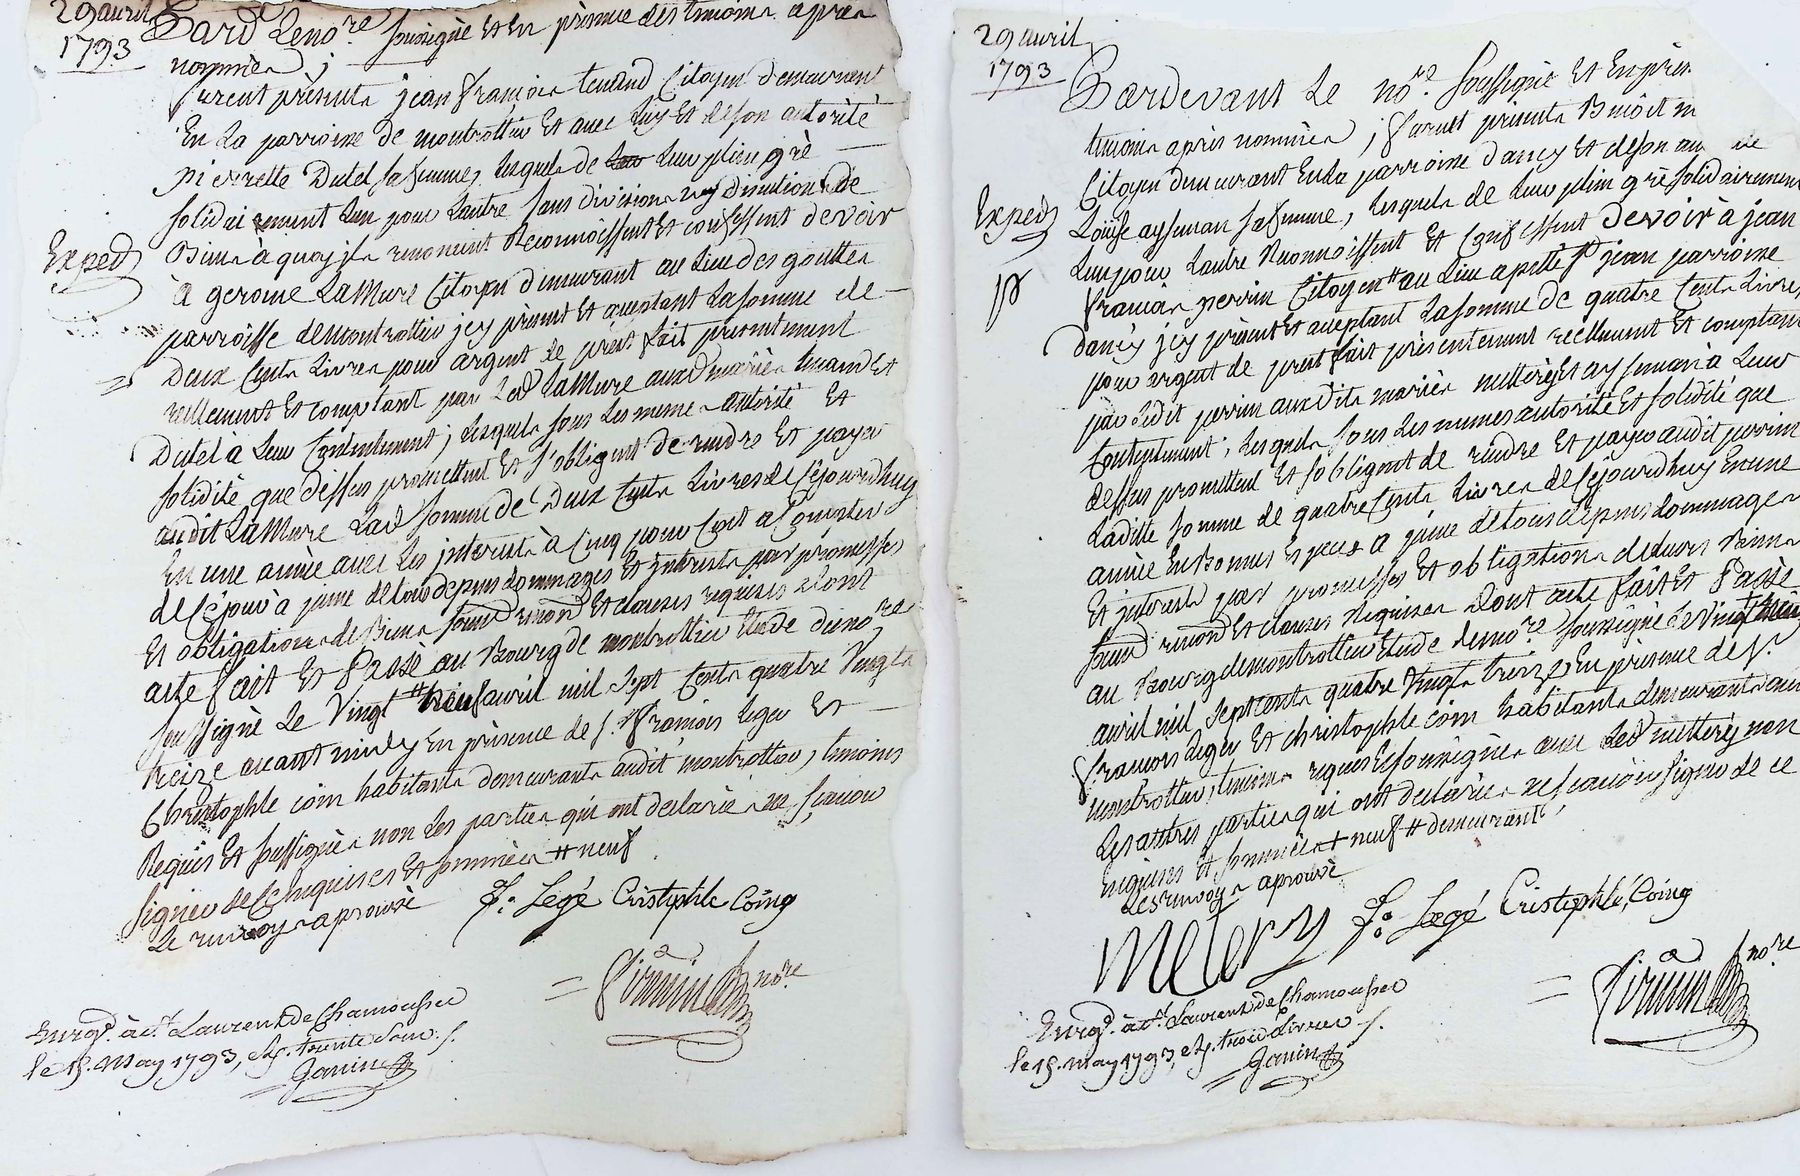 29 avril
1793
Pard. Le no.re soussigné Et En présence des temoins apres
nommés ;
furent présents jean francois tenand Citoyen demeurant
En La parroisse de montrottier Et avec luy Et de son autorité
pierrette Dutel sa femme, lesquels de Leur plein gré
solidairement Lun pour Lautre sans division ny dinution de
Biens à quoy ils renoncent Reconnoissent Et confessent devoir
Exped
à gerome LaMure Citoyen demeurant au Lieu des gouttes
parroisse de montrottier jcy présent Et aceptant La somme de
Deux Cents Livres pour argent de prêt fait presentement
réellement Et comptant par Led LaMure auxd mariés tenand Et
Dutel à Leur Contentement ; lesquels sous Les meme autorité Et
solidité que dessus promettent Et s'obligent de rendre Et payer
audit LaMure Lad somme de Deux Cents Livres de Cejourdhuy
En une année avec Les jnterests à Cinq pour Cent a Compter
de Cejour à peine de tous depens dommages Et jnterests par promesses
Et obligations de Biens soumd renond Et clauses requises dont
acte fait Et Passé au Bourg de montrottier Etude du no.re
soussigné Le Vingt # neuf avril mil sept Cents quatre Vingts
treize avant midy En présence de s.r francois Leger Et
Christophle Coin habitants demeurants audit montrottier, temoins
Requis Et soussignés non Les parties qui ont declaré ne scavoir
signer de Ce Enquises Et sommées # neuf
Le renvoy aprouvé
f: Legé Cristophle Coing
firmin no.re
Enregd. à St. Laurent de Chamousset
le 15. May 1793, R. trente sous ./.
Ganin
29 avril
1793
Pardevant Le no.re soussigné Et En prés
temoins après nommés ; furent présents Benoit m
Citoyen demeurant En La parroisse dancy Et de son au
Exped
Louise aysuman sa femme, lesquels de Leur plein gré solidairement
Lun pour Lautre Reconnoissent Et Confessent Devoir à jean
francois perrin Citoyen # au Lieu apellé st jean parroisse
dancy jcy présent Et aceptant La somme de quatre Cents Livres
pour argent de pret fait présentement réellement Et comptant
par Ledit perrin auxDits mariés metterey Et aysuman à Leur
Contentement ; Lesquels sous Les memes autorité Et solidité que
dessus promettent Et s'obligent de rendre Et payer audit perrin
Ladite somme de quatre Cents Livres de Cejourdhuy En une
année En Bonnes Especes a peine de tous depens dommages
Et jnterests par promesses Et obligations de leurs Biens
soumd renond Et clauses Requises Dont acte fait Et Passé
au Bourg de montrottier Etude de no.re soussigné Le Vingt neuf
avril mil Sept cents quatre Vingts treize, En présence de s.r
francois Leger Et christophle Coin habitants demeurants aud
montrottier, temoins requis Et soussignés avec Led metterey non
Les autres parties qui ont declarés ne scavoir signer de ce
enquises Et sommées + neuf # demeurant
Les renvoys aprouvé
f: Legé Cristophle, Coing
firmin no.re
Enregd. à St. Laurent de Chamousset
le 15. May 1793, R. trois Livres ./.
Ganin